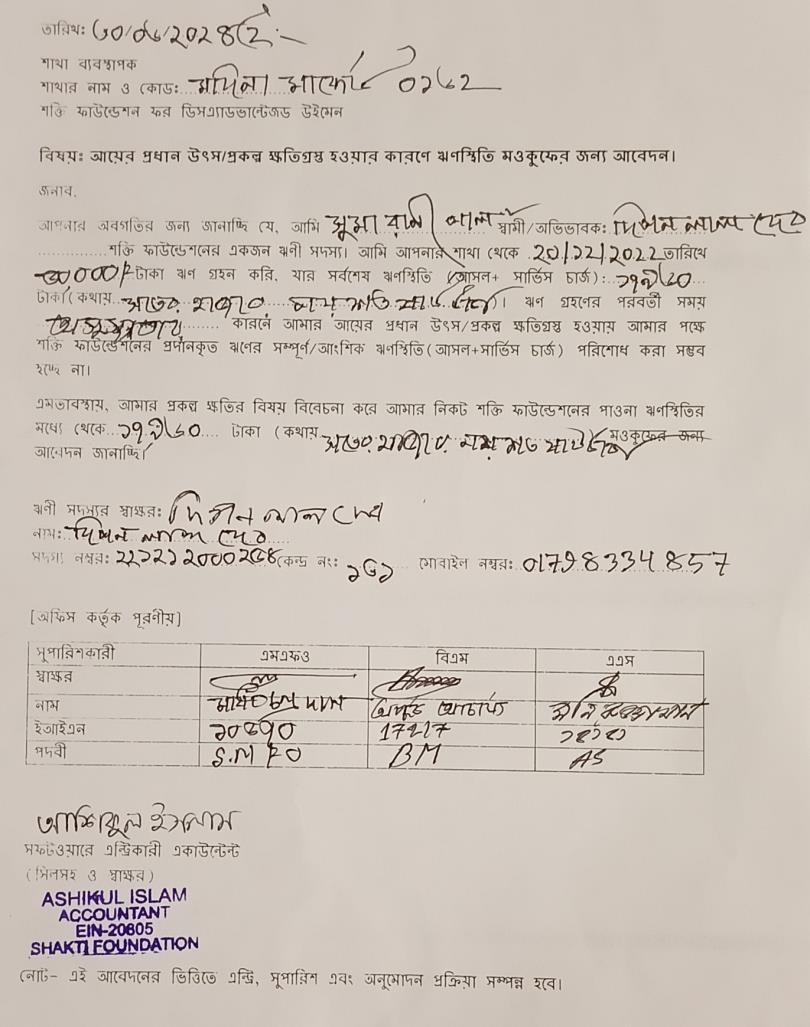 তারিখ: ৩০/০৬/২০২৪ইং
শাখা ব্যবস্থাপক
শাখার নাম ও কোড: মদিনা মার্কেট ০১৬২
শক্তি ফাউন্ডেশন ফর ডিসএ্যাডভান্টেজড উইমেন
বিষয়ঃ আয়ের প্রধান উৎস/প্রকল্প ক্ষতিগ্রস্থ হওয়ার কারণে ঋণস্থিতি মওকুফের জন্য আবেদন।
জনাব,
আপনার অবগতির জন্য জানাচ্ছি যে, আমি সুমা রানী পাল স্বামী/অভিভাবক: দিপন লাল দেব
শক্তি ফাউন্ডেশনের একজন ঋণী সদস্য। আমি আপনার শাখা থেকে ২০/১২/২০২২ তারিখে
৩০০০০/- টাকা ঋণ গ্রহন করি, যার সর্বশেষ ঋণস্থিতি (আসল+ সার্ভিস চার্জ): ১৭৯৬০
টাকা (কথায় সতের হাজার নয় শত ষাট ) । ঋণ গ্রহণের পরবর্তী সময়
কারনে আমার আয়ের প্রধান উৎস/প্রকল্প ক্ষতিগ্রস্থ হওয়ায় আমার পক্ষে
শক্তি ফাউন্ডেশনের প্রদানকৃত ঋণের সম্পূর্ণ/আংশিক ঋণস্থিতি (আসল+সার্ভিস চার্জ) পরিশোধ করা সম্ভব
হচ্ছে না।
এমতাবস্থায়, আমার প্রকল্প ক্ষতির বিষয় বিবেচনা করে আমার নিকট শক্তি ফাউন্ডেশনের পাওনা ঋণস্থিতির
মধ্যে থেকে ১৭৯৬০ টাকা (কথায় সতের হাজার নয় শত ষাট মওকুফের জন্য
আবেদন জানাচ্ছি।
ঋণী সদস্যের স্বাক্ষর: দিপন লাল দেব
নাম: দিপন লাল দেব
সদস্য নম্বর: কেন্দ্র নং: ১৬১ মোবাইল নম্বর: 01798334857
[অফিস কর্তৃক পূরণীয়]
সুপারিশকারী এমএফও বিএম এএস
স্বাক্ষর
নাম দাস
ইআইএন 17217
পদবী S.MFO BM AS
আশিকুল ইসলাম
সফটওয়ারে এন্ট্রিকারী একাউন্টেন্ট
(সিলসহ ও স্বাক্ষর)
ASHIKUL ISLAM
ACCOUNTANT
EIN-20805
SHAKTI FOUNDATION
নোট- এই আবেদনের ভিত্তিতে এন্ট্রি, সুপারিশ এবং অনুমোদন প্রক্রিয়া সম্পন্ন হবে।